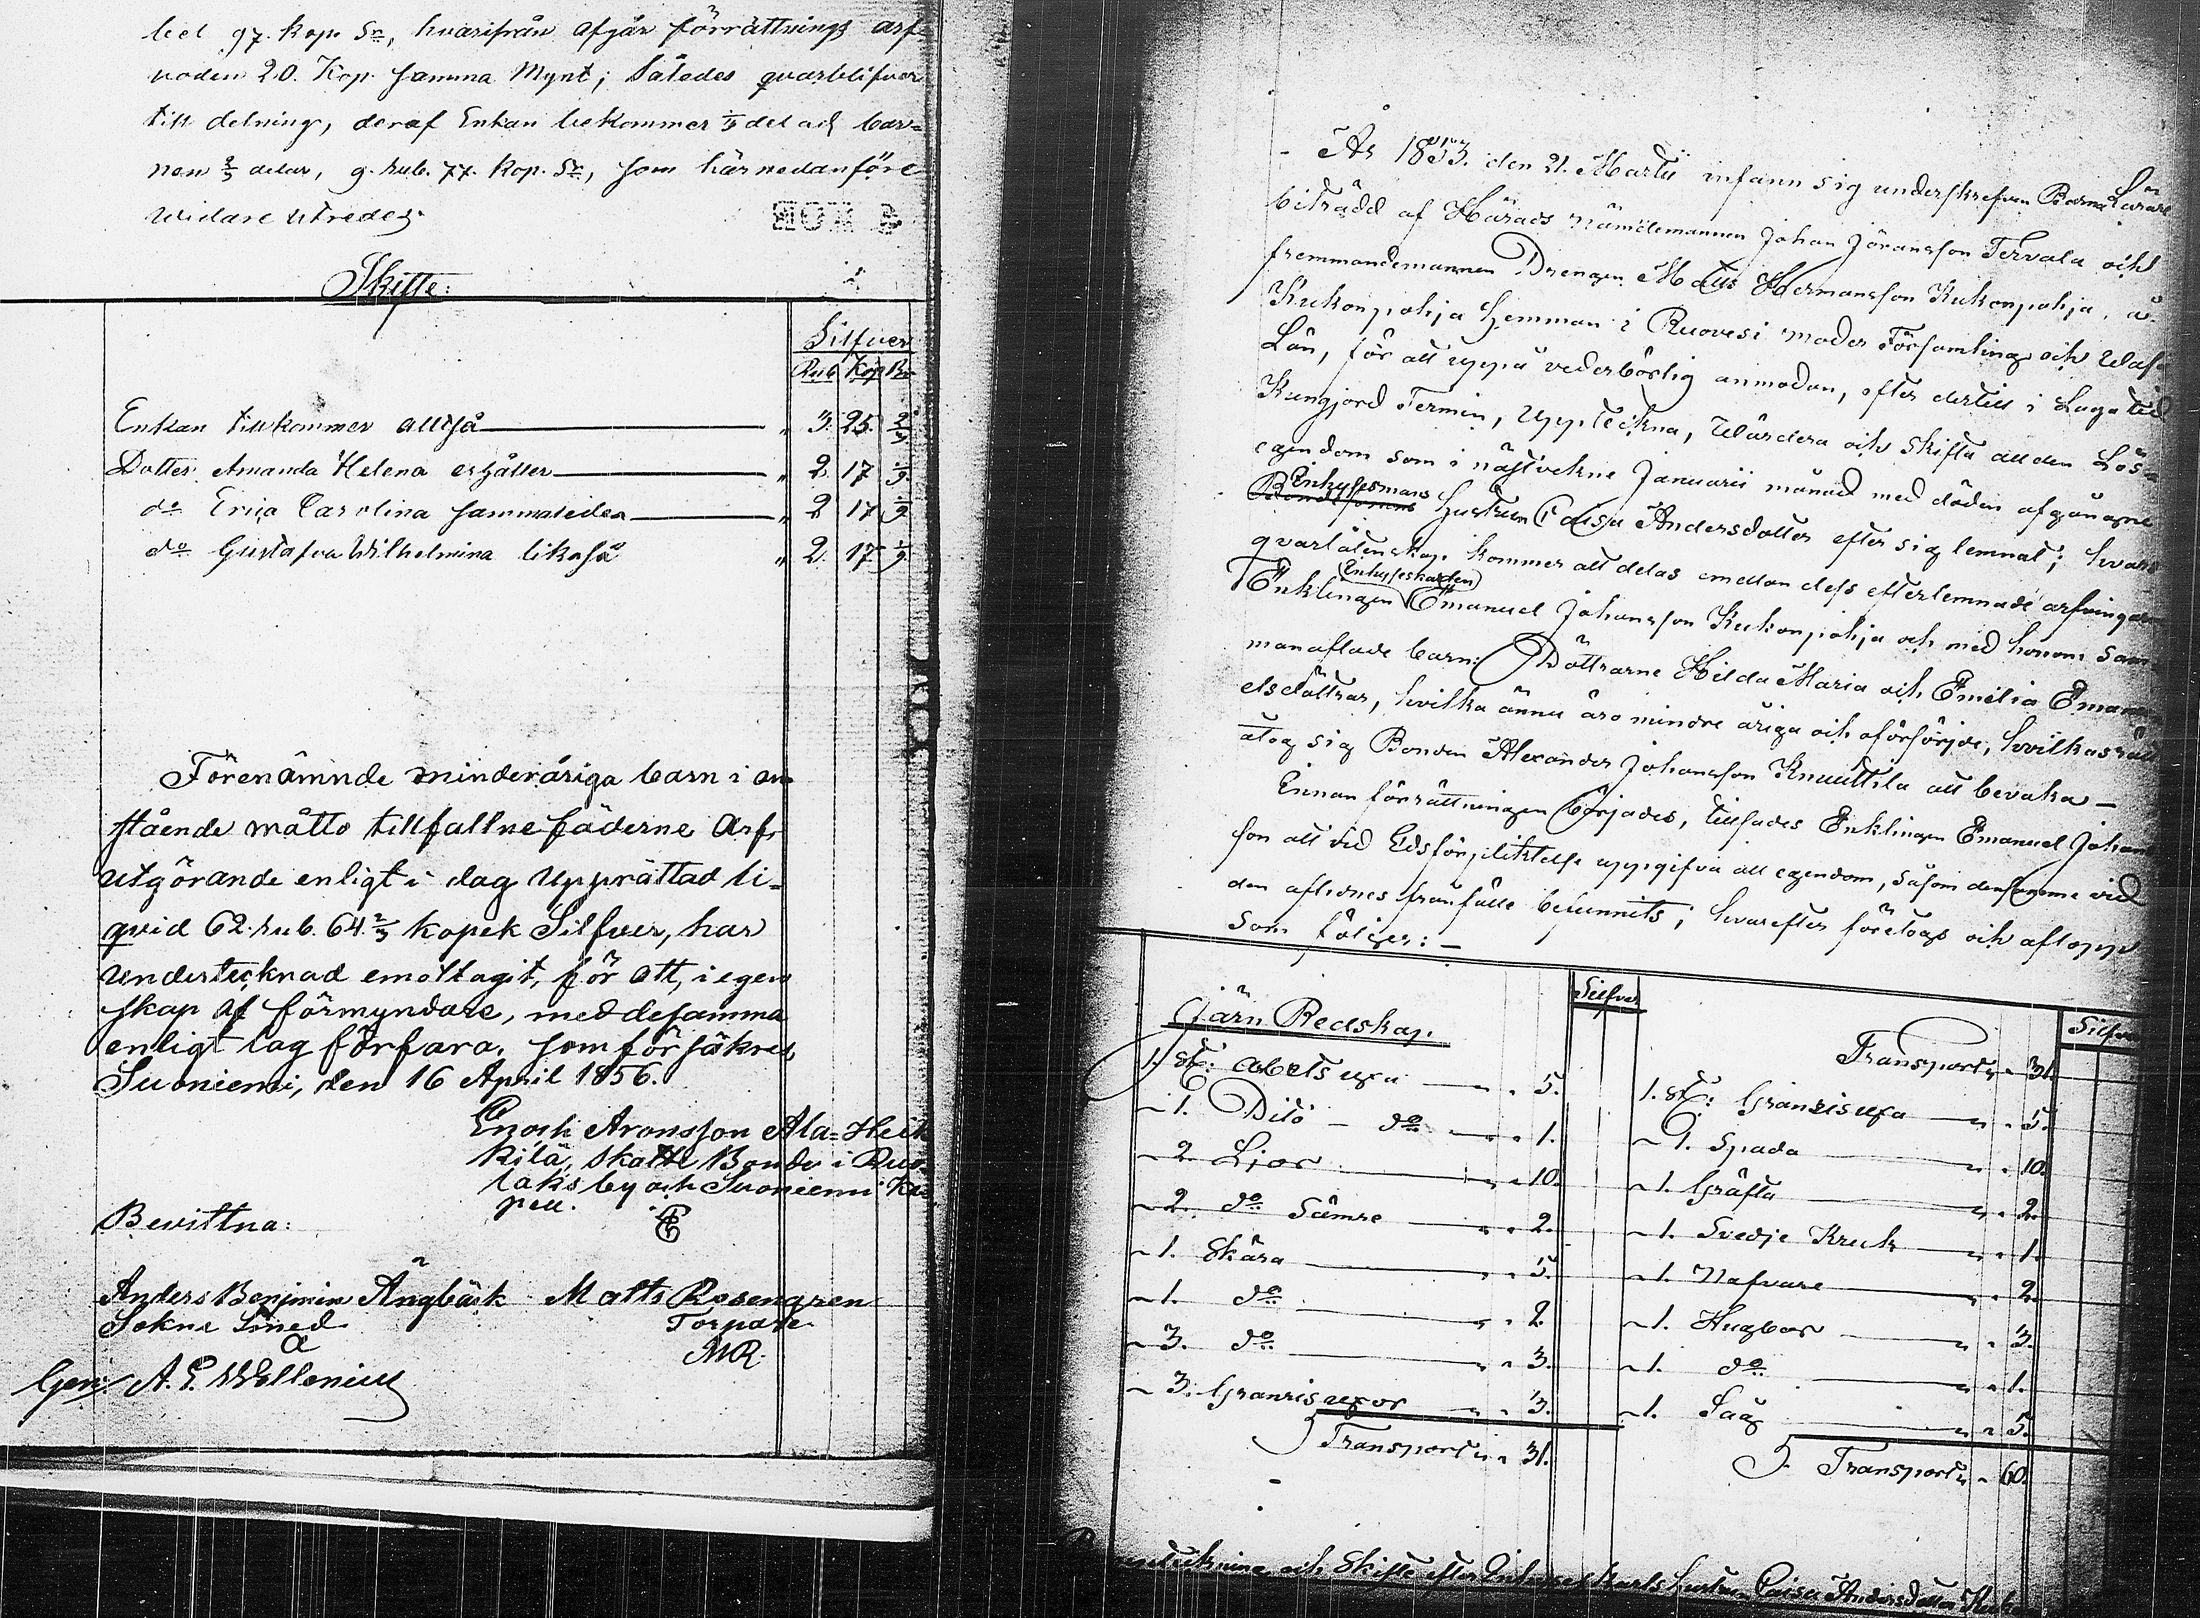 bel 97. Kop. Sr, hvarifrån afgår förrättnings arf-
voden 20. Kop. samma Mynt; Således qvarblifver
till delning, deraf Enkan bekommer 1/3 del och bar-
nen 2/3 delar, 9. rub. 77. Kop. Sr, som här nedanföre
widare utredes.
Skifte:
Silfver
Rub. Kop Br
Enkan tillkommer alltså „ 3. 25. 2/3
Dotter Amanda Helena erhåller „ 2. 17 1/9
do Erica Carolina sammaledes „ 2 17 1/9
do Gustafva Wilhelmina likaså „ 2. 17 1/9
Förenämnde minderåriga barn i an-
stående måtto tillfallne fäderne Arf,
utgörande enligt i dag upprättad li-
qvid 62. rub. 64. 2/3 kopek Silfver, har
undertecknad emottagit, för att, i egen
skap af förmyndare, med desamma
enligt lag förfara, som försäkres,
Suoniemi, den 16 April 1856.
Enoch Aronsson Ala-Heik
kilä, Skatte Bonde i Kuo
laks by och Suoniemi Ka
pell.
Bevittna:
Anders Benjmin Ängbäck Matts Rosengren
Sokne Smed Torpare
MR.
A. E. Wallenius
År 1853. den 21. Martii infann sig underskrefven Barna Lärare
biträdd af Härads nämdemannen Johan Jöransson Tervala och
fremmandemannen Drengen Matts Hermansson Kukonpohja, å
Kukonpohja hemman i Ruovesi moder Församling och Wasa
Län, för att uppå vederbörlig anmodan, efter dertill i Laga tid
Kungjord Termin, Uppteckna, Wärdera och skifta all den Lös-
egendom som i nästvekne Januarii månad med döden afgångne
Inhysesmans
Hustrun Caisa Andersdotter efter sig lemnat; hvars
qvarlåtenskap kommer att delas emellan dess efterlemnade arfvingar
Inhyseskarlen
Enklingen Emanuel Johansson Kukonpohja och med honom sam-
manaflade barn: Döttrarne Hilda Maria och Emilia Emanu
elsdöttrar, hvilka ännu äro mindre åriga och oförsörjde, hvilkas rätt
åtog sig Bonden Alexander Johansson Knuuttila att bevaka –
Ennan förrättningen börjades, tillsades Enklingen Emanuel Johans
son att vid Edsförpliktelse uppgifva all egendom, såsom densamma vid
den aflidnes frånfälle befunnits; hvarefter företogs och aflopp
som följer: –
Silfver
Silfver
Järn Redskap.
Transport „ 31.
1. st: abets uxa „ „ 5.
1. st: Granris uxa „ „ 5.
„ 1. Dito – do „ „ 1.
„ 1. Spada „ „ 10.
„ 2. Liar „ „ 10.
„ 1. Gräfta „ „ 2.
„ 2. do Sämre „ „ 2.
„ 1. Svedje Kruk „ „ 1.
„ 1. Skära „ „ 5.
„ 1. Nafvare „ „ 2.
„ 1. do „ „ 2.
„ 1. Hugbor „ „ 3.
„ 3. do „ „ 3.
„ 1. do „ „ 1.
„ 3. Granris uxor „ „ 3.
„ 1. Såg „ „ 5.
Transport „ „ 31.
Transport „ „ 60.
och Skifte efter hustru Caisa Andersdotter